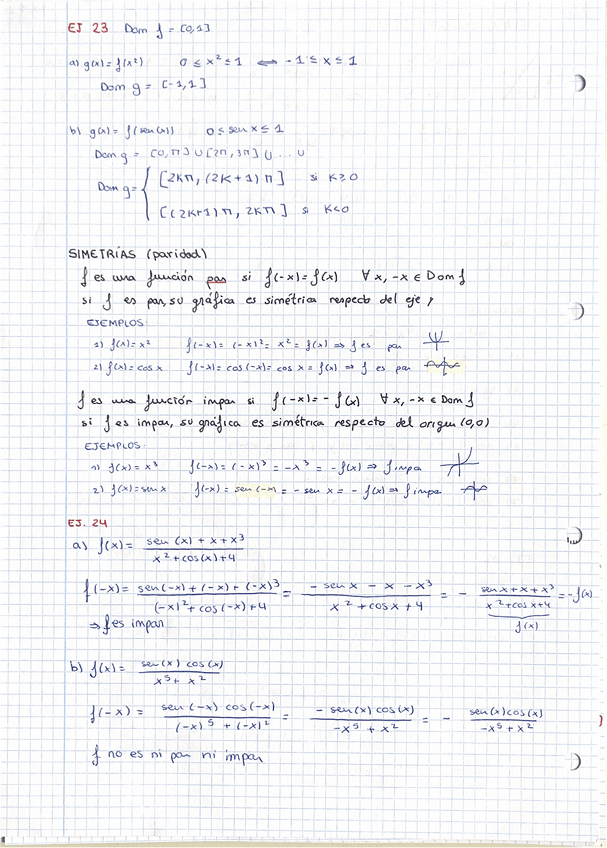 EJ 23 Dom f = [0,1]
a) g(x) = f(x²) 0 ≤ x² ≤ 1 ⟺ -1 ≤ x ≤ 1
Dom g = [-1,1]
b) g(x) = f(sen(x)) 0 ≤ sen x ≤ 1
Dom g = [0,π] ∪ [2π,3π] ∪ ... ∪
Dom g = { [2kπ, (2k+1)π] si k ≥ 0
[(2k+1)π, 2kπ] si k < 0
SIMETRÍAS (paridad)
f es una función par si f(-x) = f(x) ∀ x, -x ∈ Dom f
si f es par, su gráfica es simétrica respecto del eje y
EJEMPLOS:
1) f(x) = x² f(-x) = (-x)² = x² = f(x) ⇒ f es par
2) f(x) = cos x f(-x) = cos(-x) = cos x = f(x) ⇒ f es par
f es una función impar si f(-x) = - f(x) ∀ x, -x ∈ Dom f
si f es impar, su gráfica es simétrica respecto del origen (0,0)
EJEMPLOS:
1) f(x) = x³ f(-x) = (-x)³ = -x³ = -f(x) ⇒ f impar
2) f(x) = sen x f(-x) = sen(-x) = - sen x = - f(x) ⇒ f impar
EJ. 24
a) f(x) = (sen(x) + x + x³)/(x² + cos(x) + 4)
f(-x) = (sen(-x) + (-x) + (-x)³)/((-x)² + cos(-x) + 4) = (- sen x - x - x³)/(x² + cos x + 4) = - (sen x + x + x³)/(x² + cos x + 4) = -f(x)
f(x)
⇒ f es impar
b) f(x) = (sen(x) cos(x))/(x⁵ + x²)
f(-x) = (sen(-x) cos(-x))/((-x)⁵ + (-x)²) = (- sen(x) cos(x))/(-x⁵ + x²) = - (sen(x) cos(x))/(-x⁵ + x²)
f no es ni par ni impar